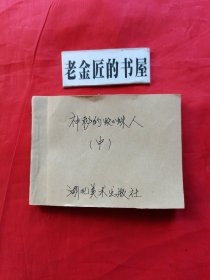 老金匠的书屋
神秘的蜘蛛人
（中）
湖北美术出版社